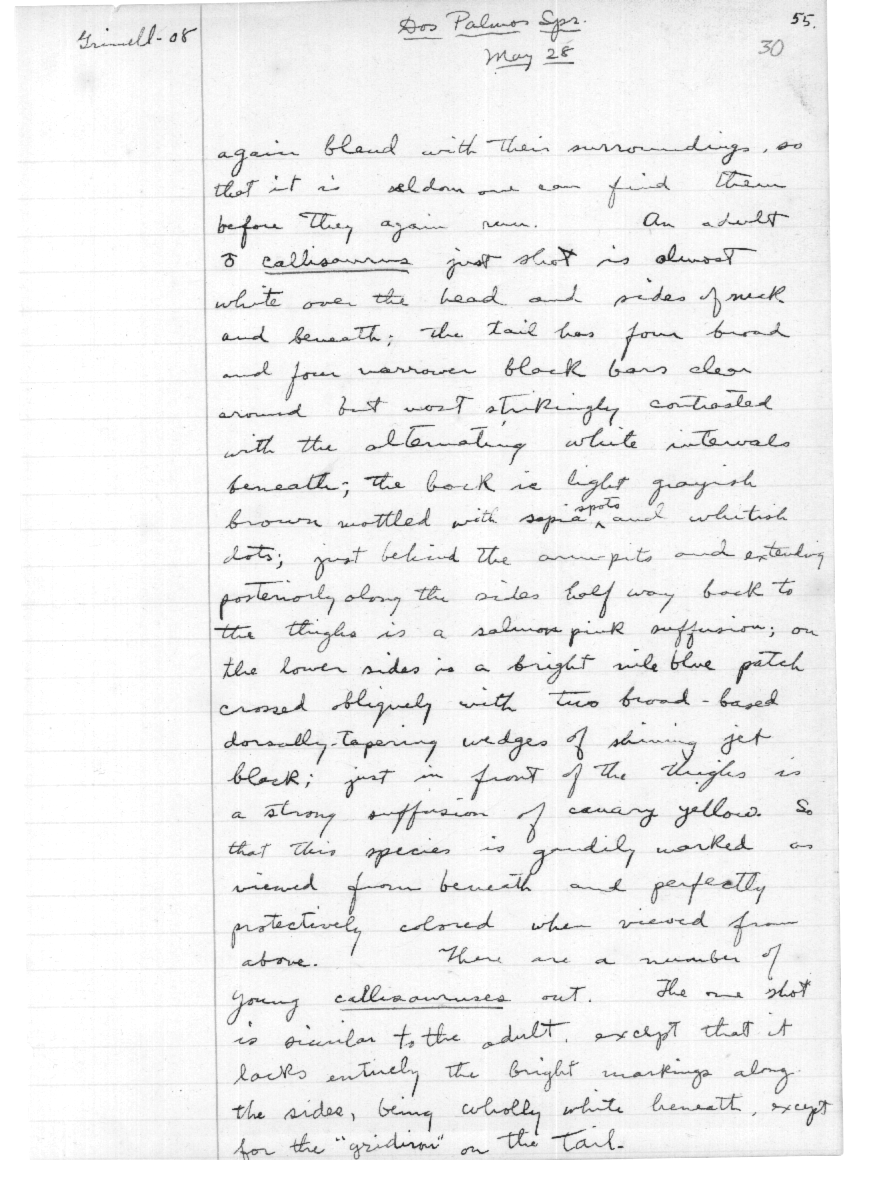 Grinnell-08
Dos Palmos Spr.
May 28
55.
30
again blend with their surroundings, so
that it is seldom one can find them
before they again run. An adult
♂ callisaurus just shot is almost
white over the head and sides of neck
and beneath; the tail has four broad
and four narrower black bars clear
around but most strikingly contrasted
with the alternating white intervals
beneath; the back is light grayish
brown mottled with sepia spots and whitish
dots; just behind the arm-pits and extending
posteriorly along the sides half way back to
the thighs is a salmon pink suffusion; on
the lower sides is a bright nile blue patch
crossed obliquely with two broad-based
dorsally-tapering wedges of shining jet
black; just in front of the thighs is
a strong suffusion of canary yellow. So
that this species is gaudily marked as
viewed from beneath and perfectly
protectively colored when viewed from
above. There are a number of
young callisauruses out. The one shot
is similar to the adult, except that it
lacks entirely the bright markings along
the sides, being wholly white beneath, except
for the "gridiron" on the tail.